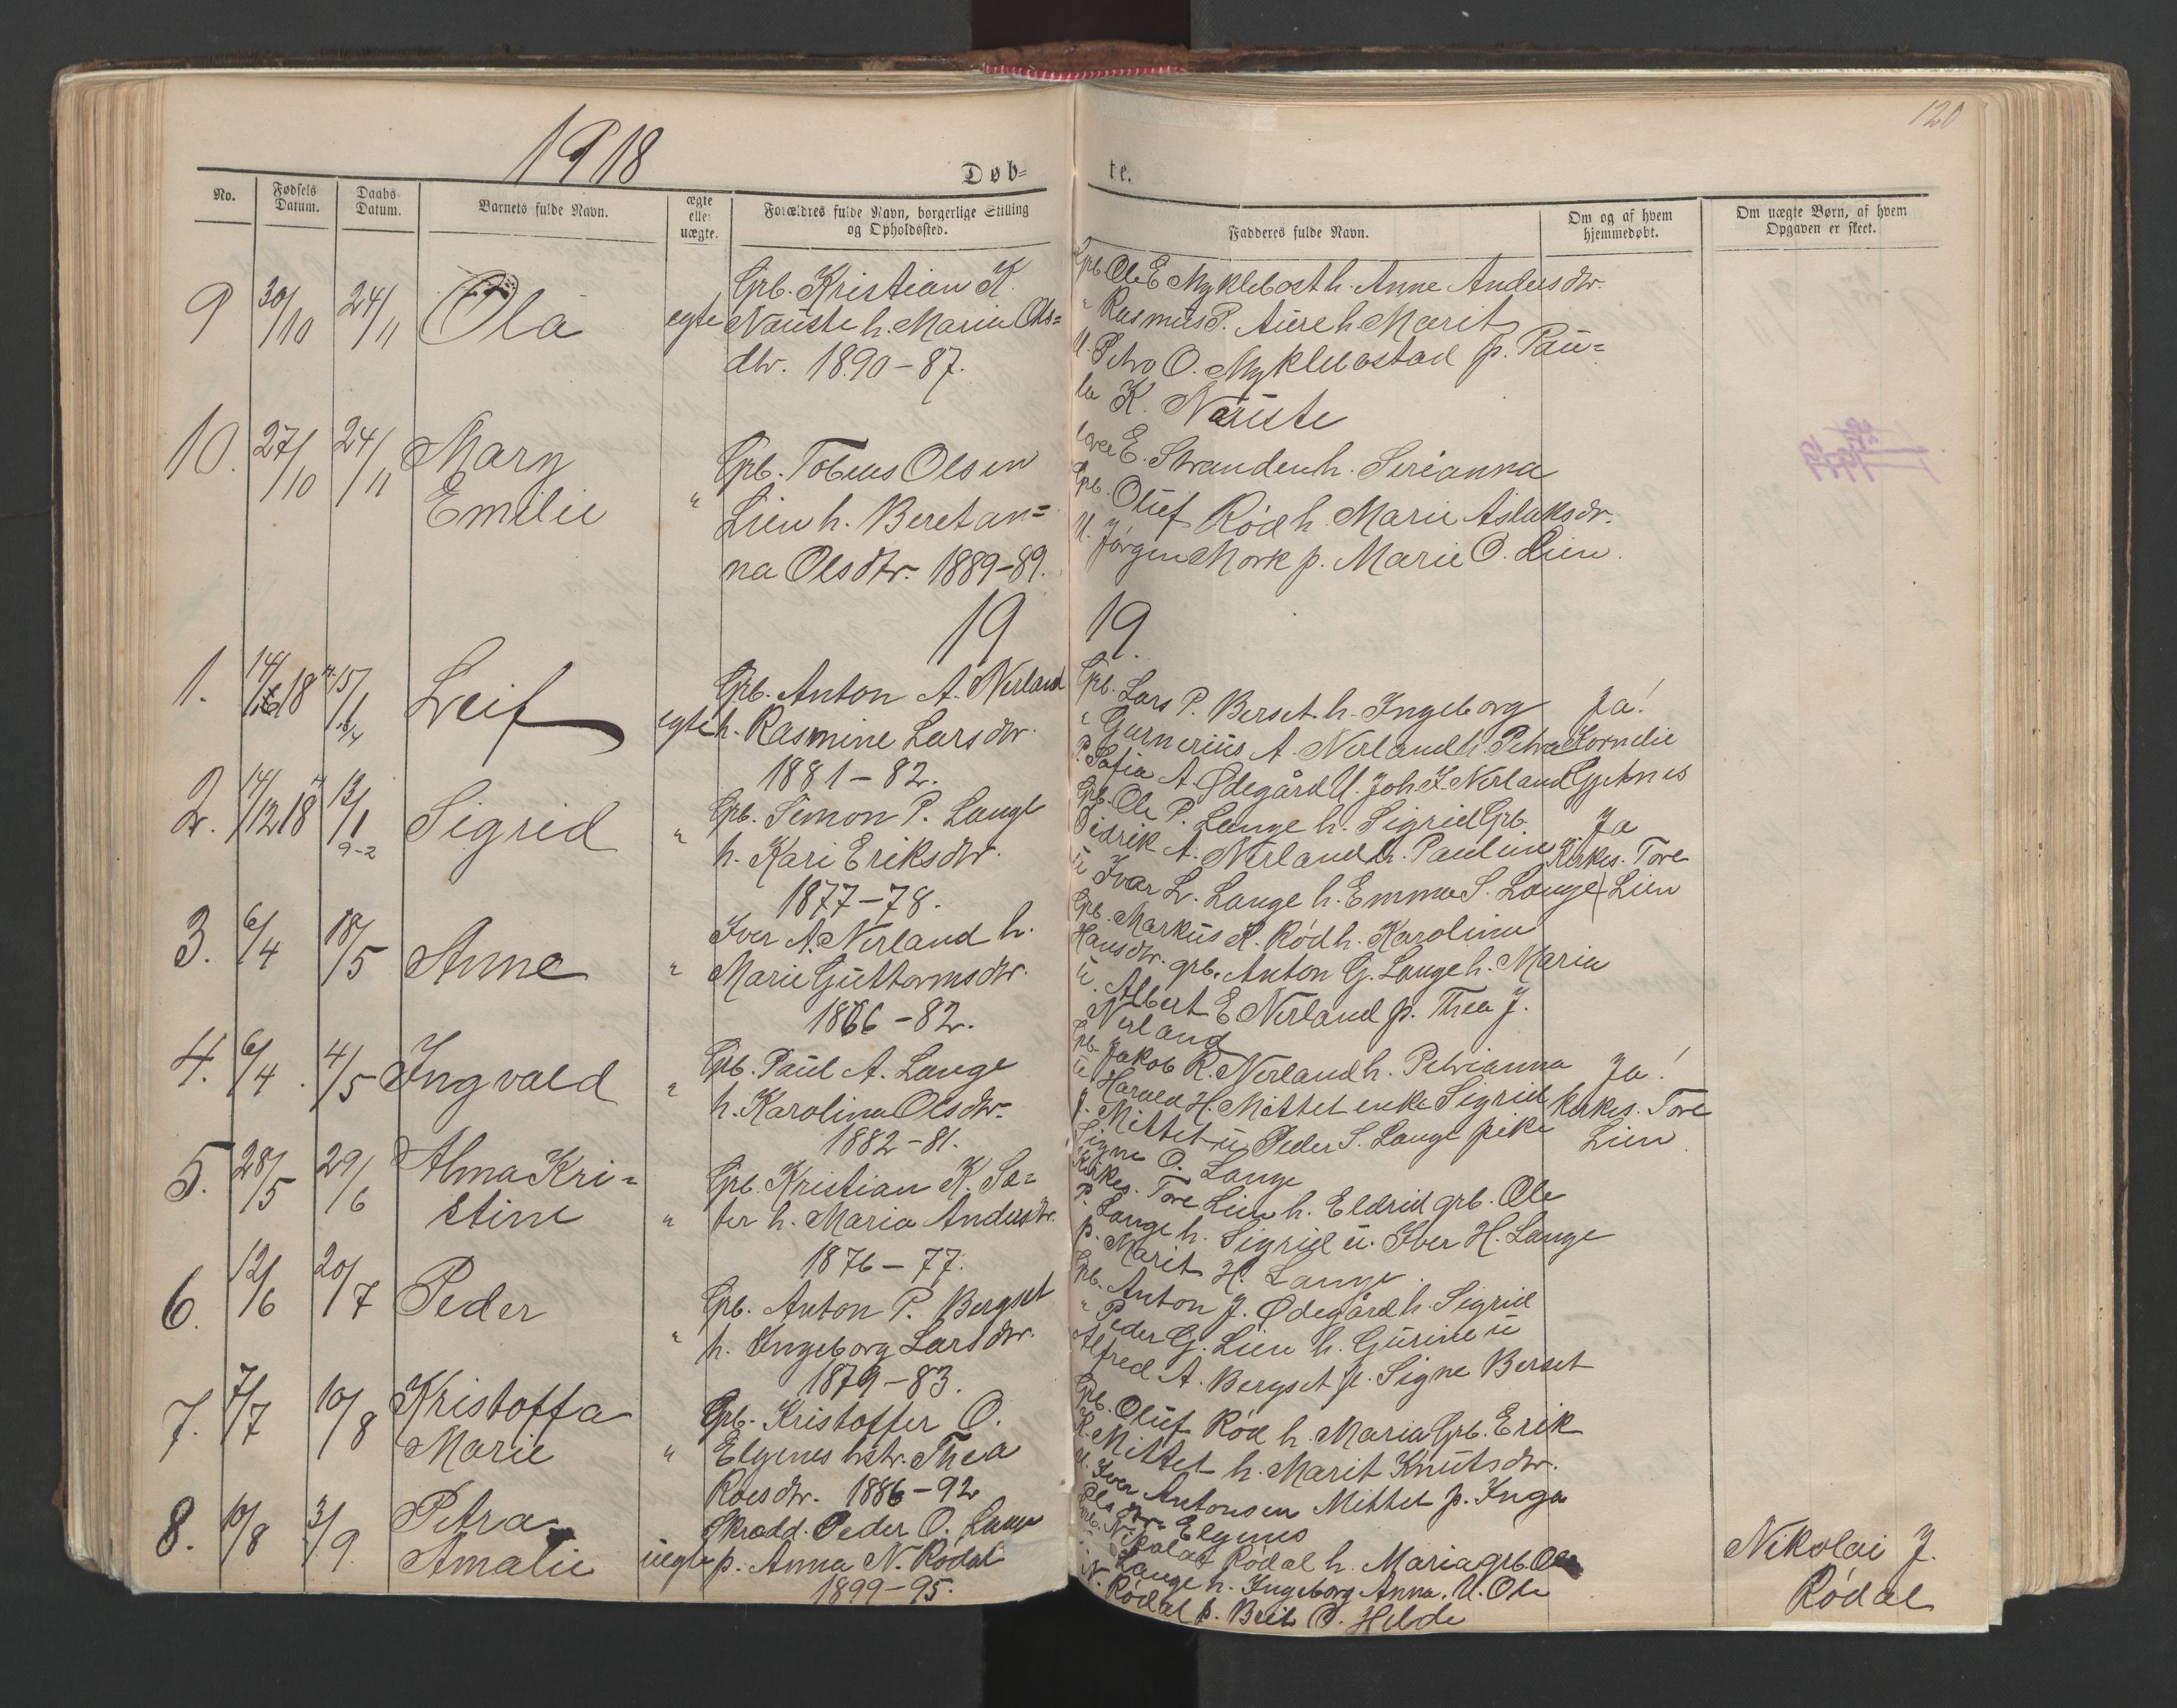 1918
120
Døb=
te.
No.
Fødsels Datum.
Daabs Datum.
Barnets fulde Navn.
ægte eller uægte.
Forældres fulde Navn, borgerlige Stilling og Opholdssted.
Fadderes fulde Navn.
Om og af hvem hjemmedøbt.
Om uægte Børn, af hvem Opgaven er skeet.
9 30/10 24/11 Ola egte
Grb. Kristian K.
Nauste h. Maria Ols=
dtr. 1890-87.
Grb. Ole E Myklebost h. Anne Andersdtr.
" Rasmus P. Aure h. Marit
U. Petro O. Myklebostad p. Pau=
la K. Nauste
10. 27/10 24/11 Mary
Emilie "
Grb. Tobias Olsen
Lien h. Beret an=
na Olsdtr. 1889-89.
E. Stranden h. Serianna
Grb. Oluf Rød h. Marie Aslaksdr.
U. Jørgen Mork p. Marie O. Lien.
19 19.
1. 14/12 18 15/1 Leif egte
Grb. Anton A. Nerland
h. Rasmine Larsdtr.
1881-82.
Grb. Lars P. Berset h. Ingeborg
" Gurnerius A. Nerland h. Petra
P. Sofia A. Ødegård U. Joh. J. Nerland
Ja!
Kornelie
Gjetnes
2. 14/12 18 13/1 Sigrid "
9-2
Grb. Simon P. Lange
h. Kari Eriksdtr.
1877-78.
Grb. Ole P. Lange h. Sigrid Grb.
Didrik A. Nerland h. Pauline
u Ivar L. Lange h. Emma S. Lange
Ja
Kirkes. Tore
Lien
3. 6/4 18/5 Anne "
Iver A. Nerland h.
Marie Guttormsdtr.
1866-82.
Grb. Markus K. Rød h. Karolina
Hansdtr. grb. Anton G. Lange h. Maria
u. Albert E Nerland p. Thea J.
Nerland
4. 6/4. 4/5 Ingvald "
Grb. Paul A. Lange
h. Karolina Olsdtr.
1882-81.
Grb. Jakob R. Nerland h. Petrianna
u Harald H. Mittet enke Sigrid
J. Mittet u Peder S. Lange pike
Signe O. Lange
Ja!
Kirkes. Tore
Lien.
5. 28/5 29/6 Alma Kri=
stine "
Grb. Kristian K. Sæ=
ter h. Maria Andersdtr.
1876-77.
Kirkes. Tore Lien h. Eldrid grb. Ole
P. Lange h. Sigrid u. Iver H. Lange
p. Marit H. Lange.
6. 12/6 20/7 Peder "
Grb. Anton P. Bergset
h. Ingeborg Larsdtr.
1879-83.
Grb. Anton J. Ødegård h. Sigrid
" Peder G. Lien h. Gurine u
Alfred A. Bergset p. Signe Berset
7. 7/7 10/8 Kristoffa
Marie "
Grb. Kristoffer O.
Elgenes hstr. Thea
Roesdtr. 1886-92
Grb. Oluf Rød h. Maria Grb. Erik
K. Mittet h. Marit Knutsdtr.
U. Iver Antonsen Mittet p. Inga
Elgenes
8. 10/8 3/9 Petra
Amalie uegte
Skrædd. Peder O. Lange
p. Anna N. Rødal
1899-95.
Grb. Nikolai Rødal h. Maria grb. Ole
Lange h. Ingeborg Anna. U. Ole
N. Rødal p. Berit O. Hilde
Nikolai J.
Rødal